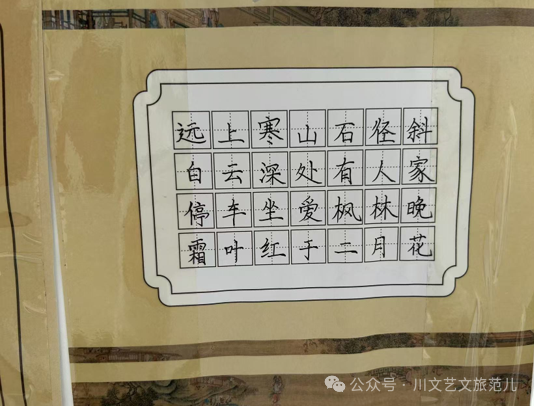 远上寒山石径斜
白云深处有人家
停车坐爱枫林晚
霜叶红于二月花
公众号·川文艺文旅范儿